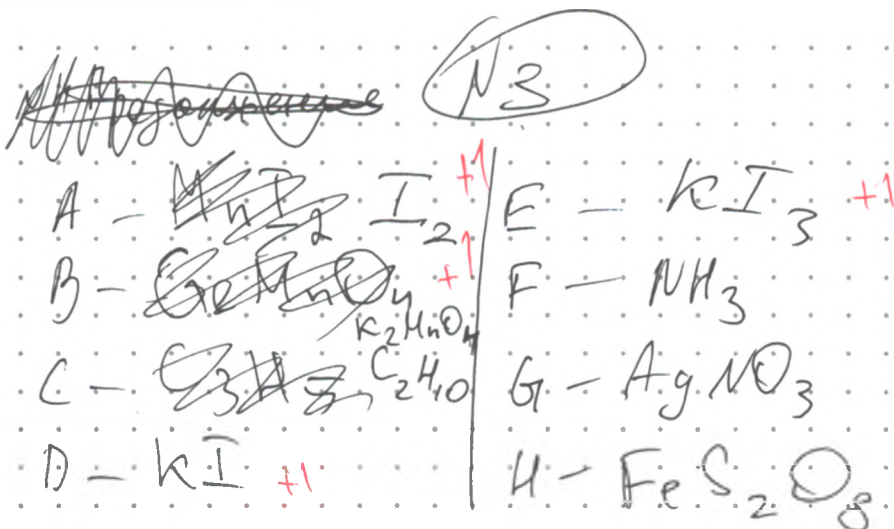 N3
A - I2 +1
B - K2MnO4 +1
C - C2H10
D - KI +1
E - KI3 +1
F - NH3
G - AgNO3
H - FeS2O8